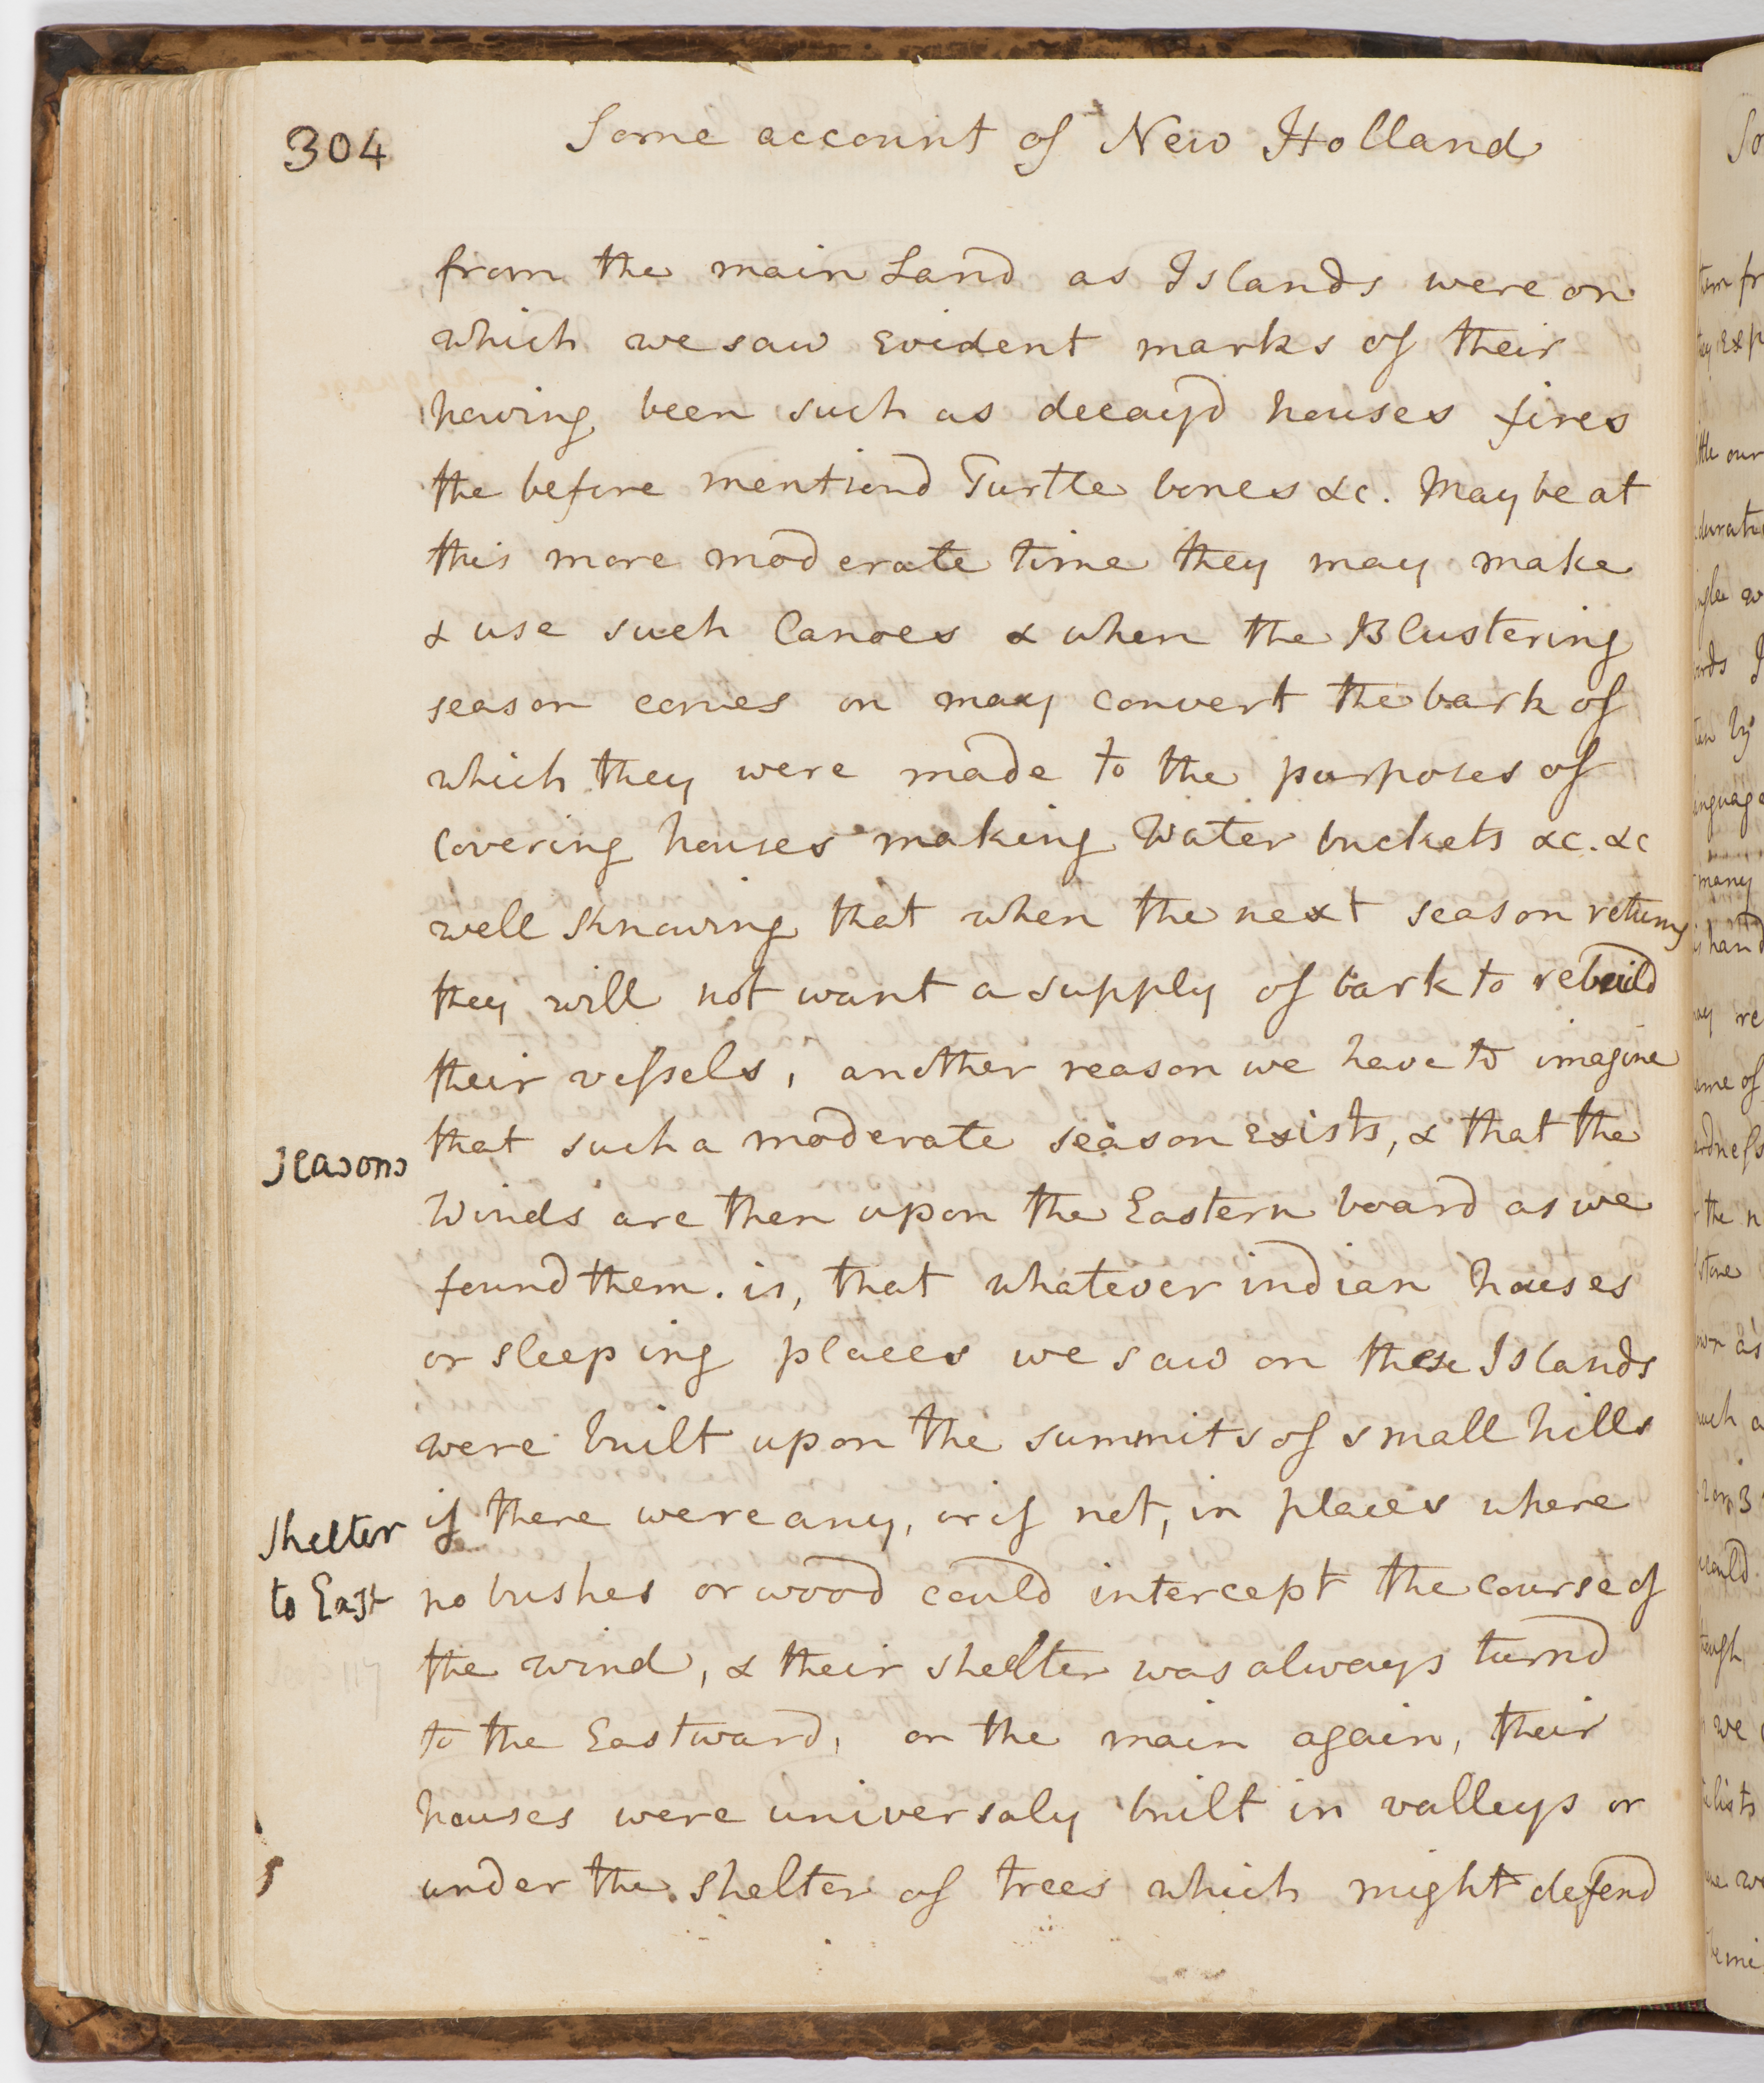 304
Some account of New Holland
from the main Land as Islands were on
which we saw Evident marks of their
having been such as decayd houses fires
the before mentiond Turtle bones &c. May be at
this more moderate time they may make
& use such Canoes & when the Blustering
season comes on may convert the bark of
which they were made to the purposes of
covering houses making Water buckets &c. &c
well knowing that when the next season returns
they will not want a supply of bark to rebuild
their vessels, another reason we have to imagine
seasons
that such a moderate season exists, & that the
Winds are then upon the Eastern board as we
found them. is, that whatever indian houses
or sleeping places we saw on these Islands
were built upon the summits of small hills
shelter
if there were any, or if not, in places where
to East
no bushes or wood could intercept the course of
the wind, & their shelter was always turnd
to the Eastward, on the main again, their
houses were universaly built in valleys or
under the shelter of trees which might defend